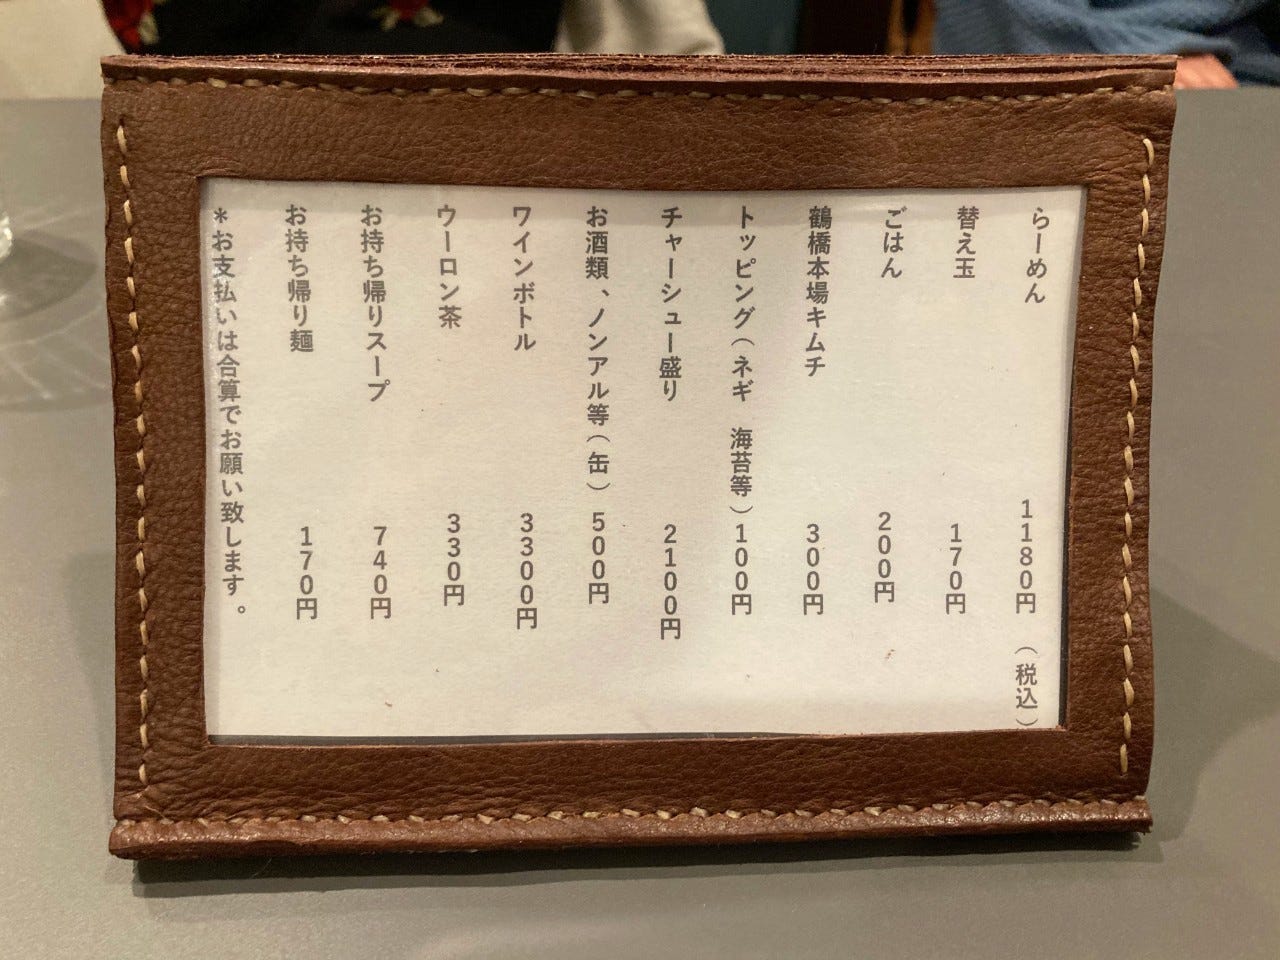 らーめん 1180円 （税込）
替え玉 170円
ごはん 200円
鶴橋本場キムチ 300円
トッピング（ネギ 海苔等）100円
チャーシュー盛り 2100円
お酒類、ノンアル等（缶） 500円
ワインボトル 3300円
ウーロン茶 330円
お持ち帰りスープ 740円
お持ち帰り麺 170円
＊お支払いは合算でお願い致します。